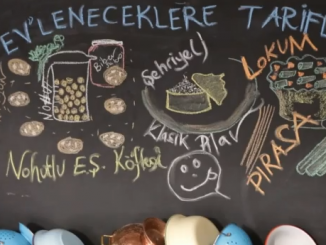 EV'LENECEKLERE TARİFL
Şehriyeli
Klasik Pilav
LOKUM
PIRASA
Nohutlu E.Ş. Köftesi